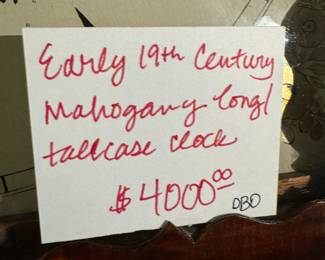 Early 19th Century
Mahogany long/
tallcase clock
$4000.00
DBD